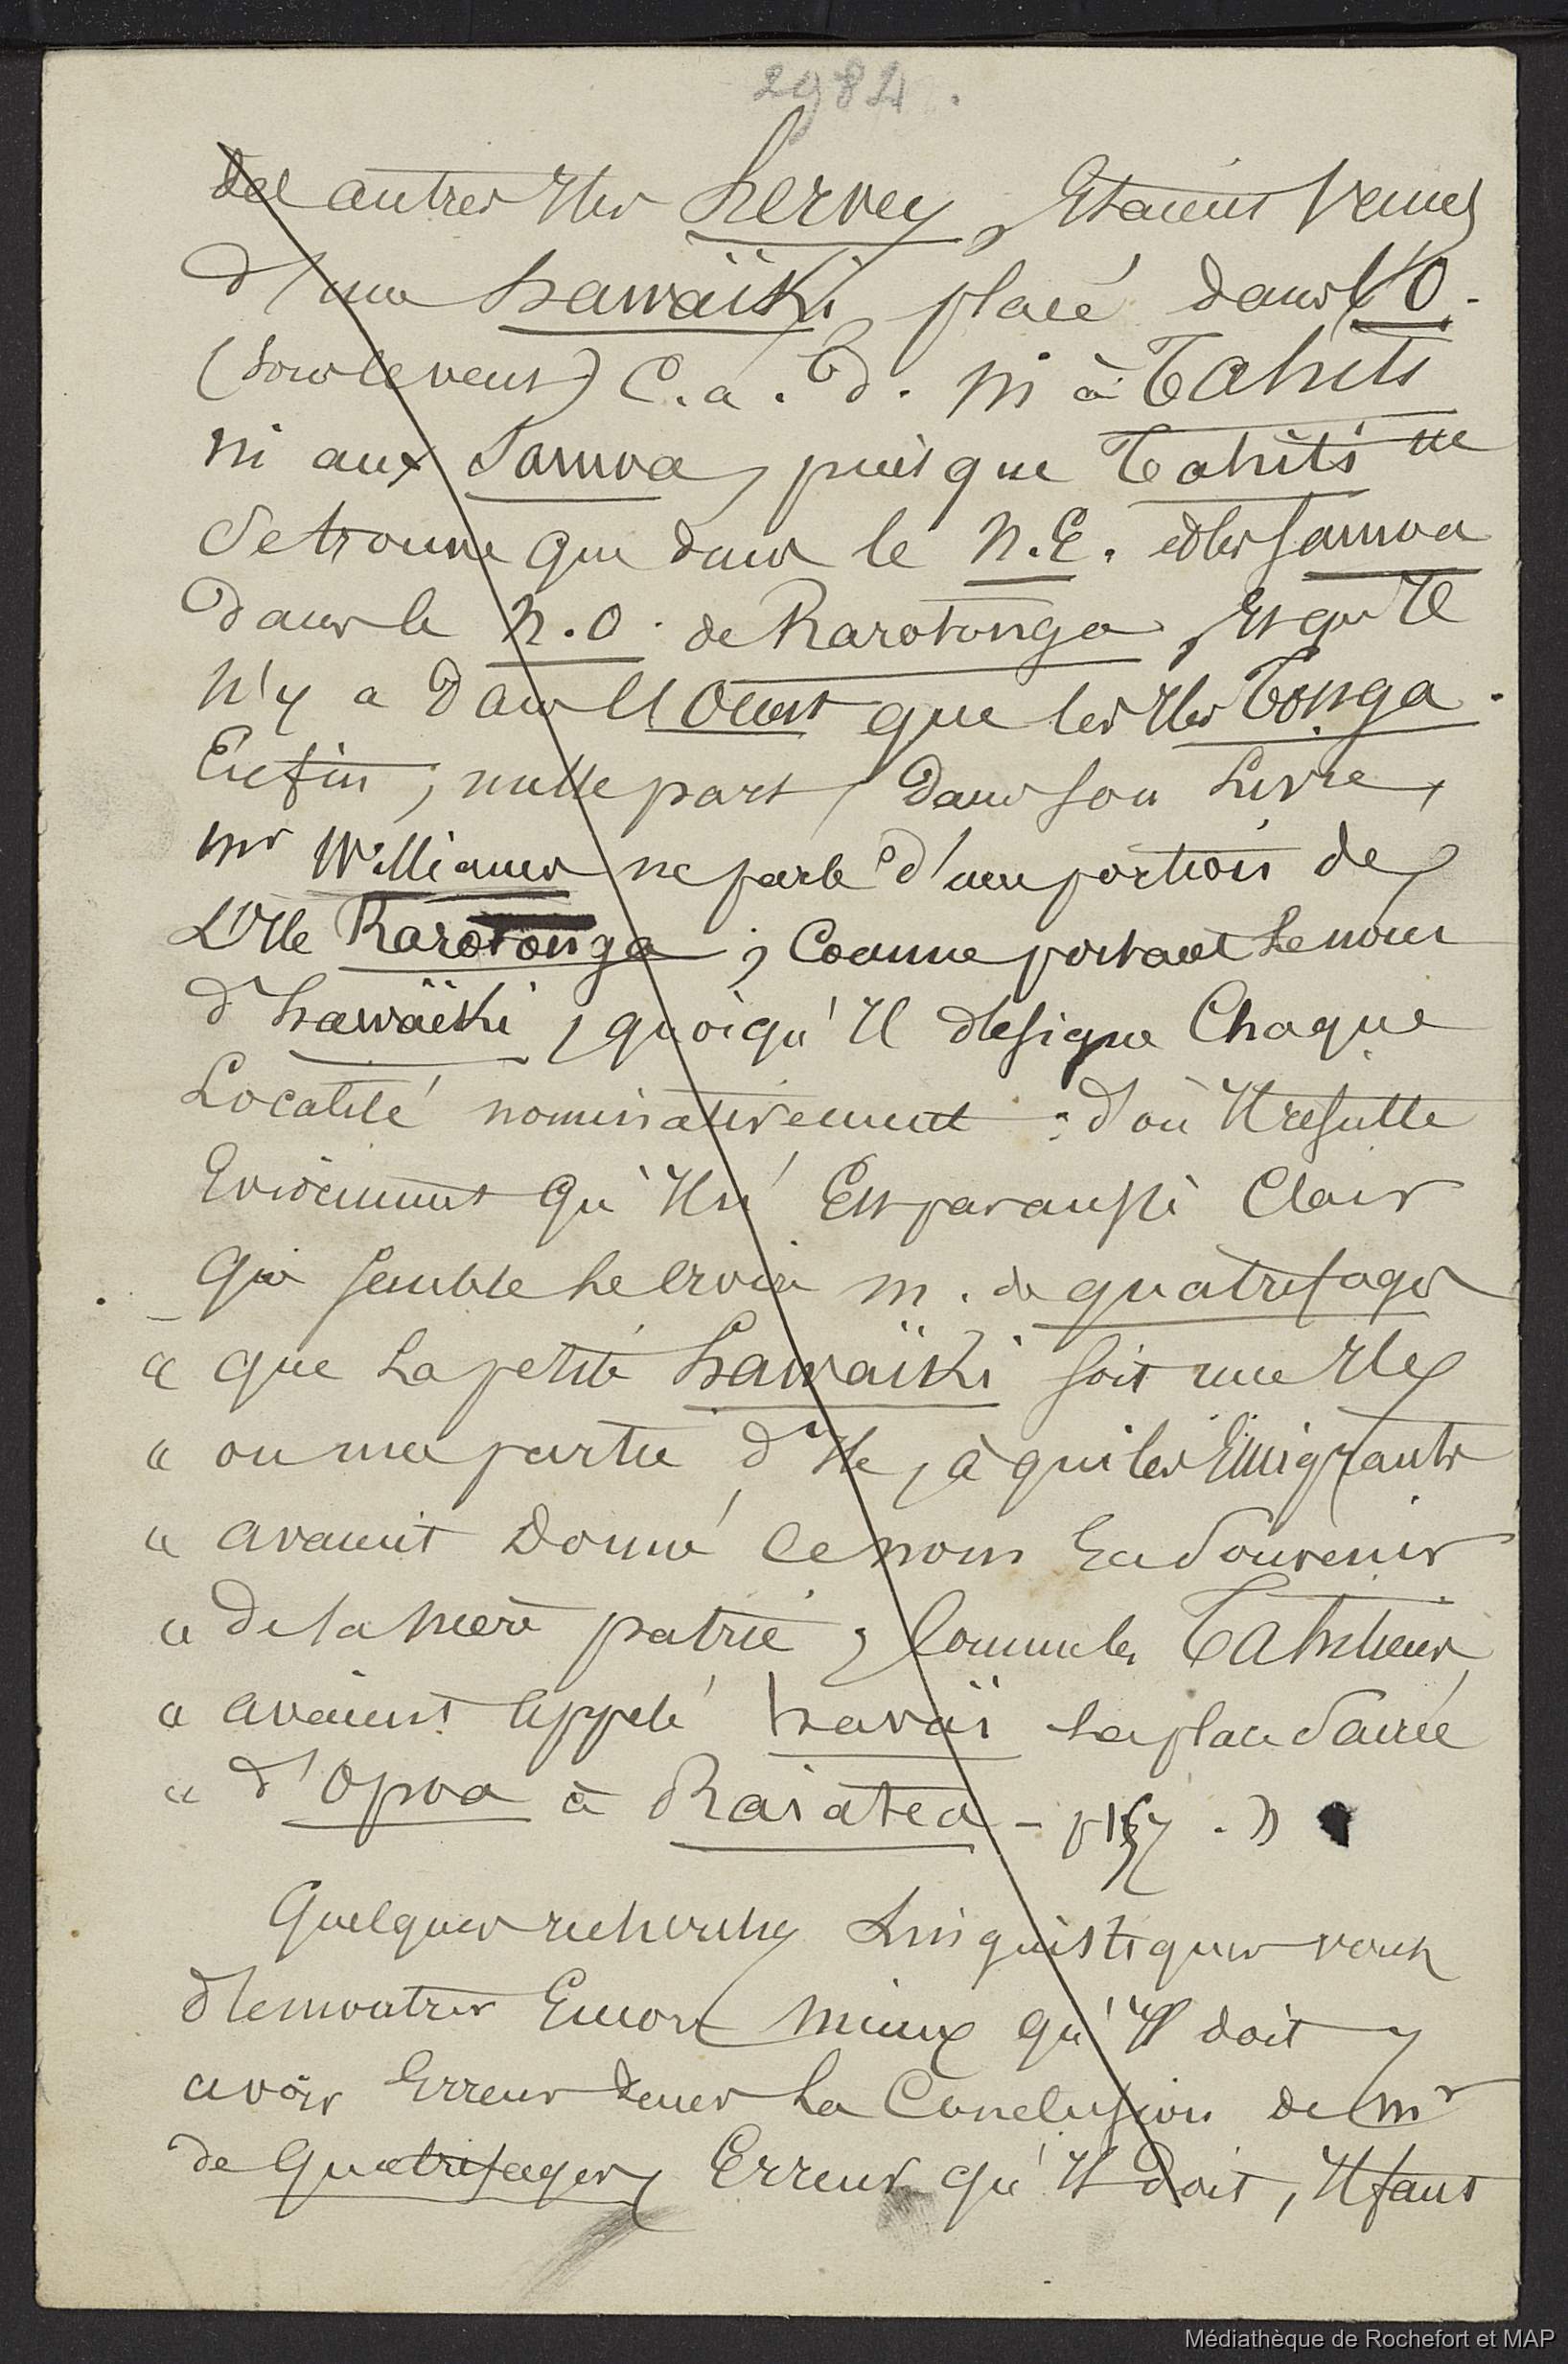 2984.
des autres Iles hervey, Etaient Venues
d'une hawaïki, placé dans l'O.
(sous le vent) C. a. d. ni à Tahiti
ni aux Samoa, puisque Tahiti ne
se trouve que dans le N.E. et les Samoa
dans le N.O. de Rarotonga, Et qu'Il
n'y a dans l'Ouest que les Iles Tonga.
Enfin, nulle part, dans son Livre,
Mr Williams ne parle d'une portion de
L'Ile Rarotonga, Comme portant le nom
d'hawaïki, quoiqu'Il designe Chaque
Localité nominativement : d'où Il resulte
Evidemment qu'Il n'Est pas aussi Clair
que semble le croire M. de quatrefages
" que La petite hawaïki soit une Ile
" ou une partie d'Ile, à qui les Emigrants
" avaient Donné ce nom En Souvenir
" de la Mère patrie, Comme les Tahitiens
" avaient Appelé havaï La place Sacrée
" d'Opoa à Raiatea - p 157. "
Quelques recherches Linguistiques vont
démontrer Encore mieux qu'Il doit y
avoir Erreur dans La Conclusion de Mr
de Quatrefages, Erreur qu'Il doit, Il faut
Médiathèque de Rochefort et MAP